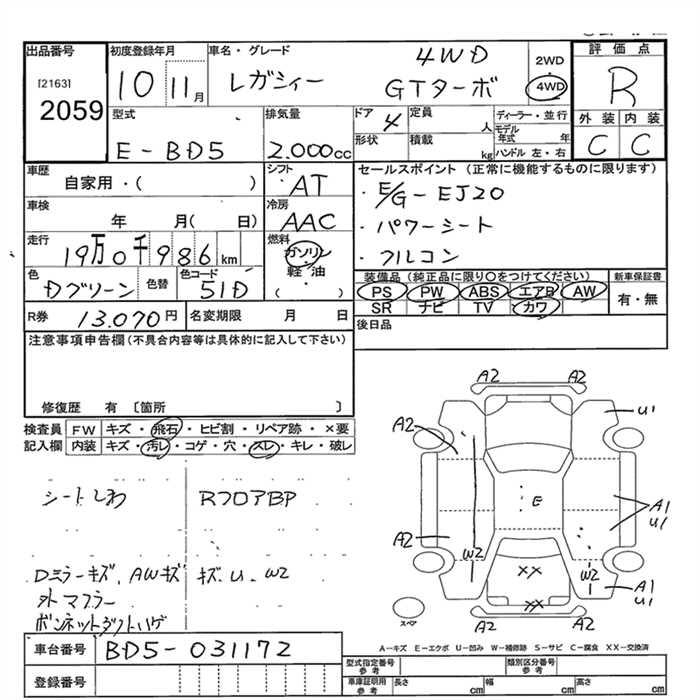 出品番号 初度登録年月 車名・グレード 4WD 2WD 評価点
[2163] 10 11月 レガシィー GTターボ 4WD R
2059
型式 排気量 ドア 4 定員 人 ディーラー・並行 外装 内装
E-BD5 2.000cc 形状 積載 kg モデル年式 年 C C
ハンドル 左・右
車歴 シフト セールスポイント (正常に機能するものに限ります)
自家用・( ) AT ・E/G-EJ20
車検 年 月( 日) 冷房 AAC ・パワーシート
走行 19万0千986km 燃料 ガソリン ・フルコン
軽・油
( )
色 Dグリーン 色替 色コード 51D
装備品 (純正品に限り〇をつけてください) 新車保証書
PS PW ABS エアB AW 有・無
SR ナビ TV カワ
R券 13.070円 名変期限 月 日 後日品
注意事項申告欄(不具合内容等は具体的に記入して下さい)
修復歴 有 〔箇所 〕
検査員 FW キズ・飛石・ヒビ割・リペア跡・×要
記入欄 内装 キズ・汚レ・コゲ・穴・スレ・キレ・破レ
シートしわ RフロアBP
Dミラーキズ、AWキズ キズ、U、W2
外マフラー
ボンネットダクトハゲ
A2 A2
A2 U1
E
A1
U1
A2
W2 W2
XX
A1
U1
XX
スペア
A2 A2
A-キズ E-エクボ U-凹み W-補修跡 S-サビ C-腐食 XX-交換済
車台番号 BD5-031172
登録番号
型式指定番号 参考 類別区分番号 参考
車庫証明用 参考 長さ cm 幅 cm 高さ cm